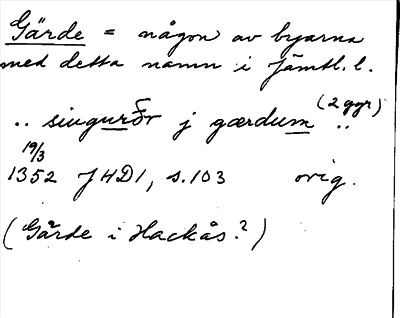 Gärde = någon av byarna
med detta namn i Jämtl. l.
.. siugurðr j gærdum (2 ggr) ..
19/3
1352 JHD1, s. 103 orig.
(Gärde i Hackås?)